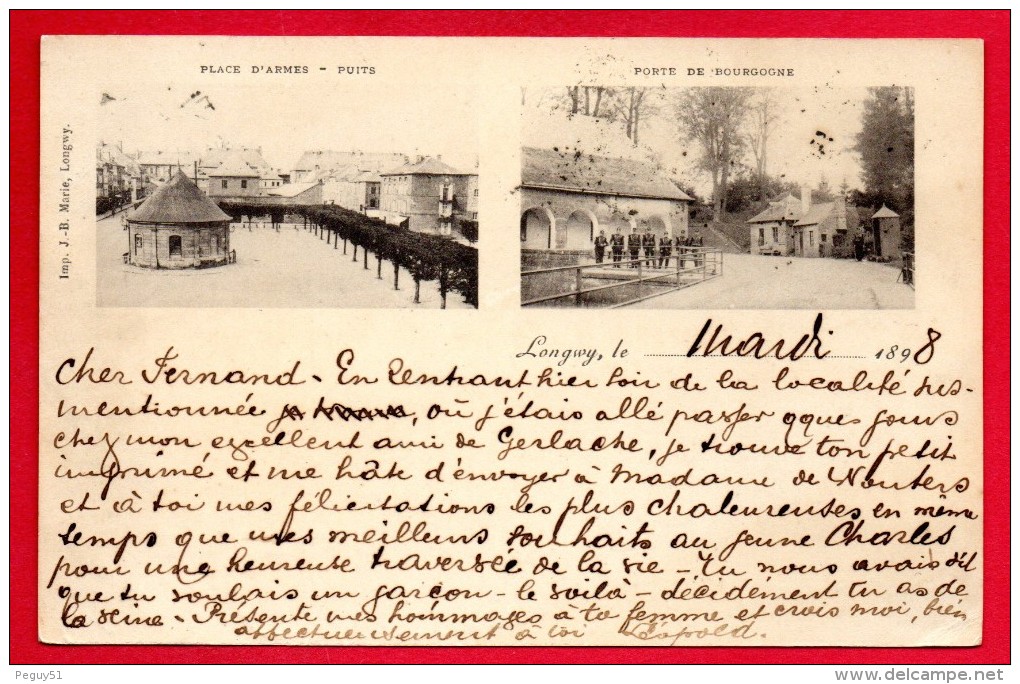 PLACE D'ARMES - PUITS
PORTE DE BOURGOGNE
Imp. J.-B. Marie, Longwy.
Longwy, le Mardi 1898
Cher Fernand - En rentrant hier soir de la localité sus-
mentionnée je trouve, où j'étais allé passer qques jours
chez mon excellent ami de Gerlache, je trouve ton petit
imprimé et me hâte d'envoyer à Madame de Wouters
et à toi mes félicitations les plus chaleureuses en même
temps que mes meilleurs souhaits au jeune Charles
pour une heureuse traversée de la vie - Tu nous avais dit
que tu voulais un garçon - le voilà - décidément tu as de
la veine - Présente mes hommages à ta femme et crois moi, bien
affectueusement à toi Léopold.
Peguy51
www.delcampe.net